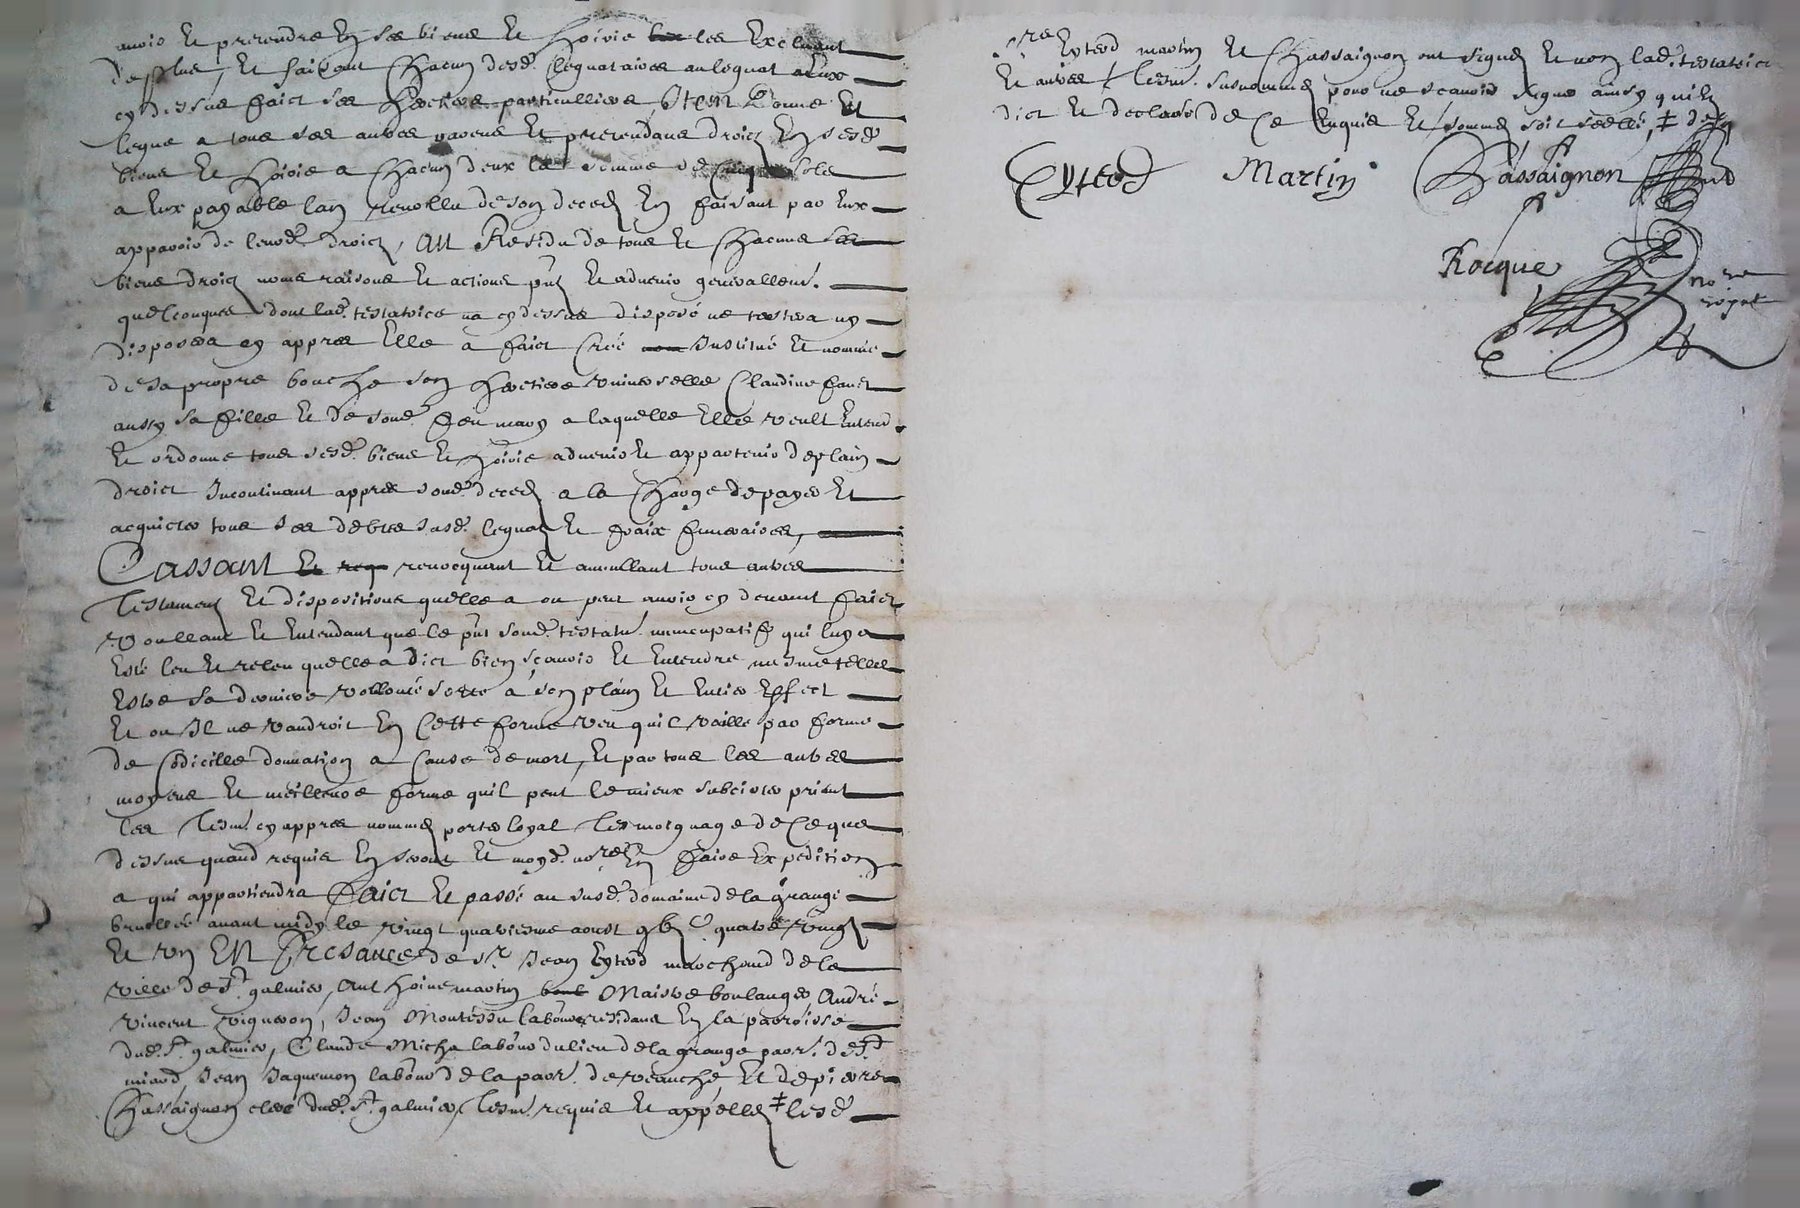 avoir et prerendre en ses biens et hoirie les excluant
de plus, et faisant chacun desd. legataires au legat a eux
cy dessus faict ses heretiers particulliers Item donne et
legue a tous ses autres parens et prerendans droict en sesd.
biens et hoirie a chacun deux la somme de cinq sols
a eux payable lan revollu de son deced en faisant par eux
apparoir de leurd. droict, Au Residu de tous et chacuns ses
biens droict noms raisons et actions pnt et advenir generallemt.
quelconques dont lad. testatrice na cy dessus disposé ne testera ny
disposera cy appres Elle a faict Créé Institué et nommé
de sa propre bouche son heretiere universelle Claudine
aussy sa fille et de sond. feu mary a laquelle Elle veult Entend
et ordonne tous sesd. biens et hoirie advenir et appartenir de plain
droict Incontinant appres sond. deced a la charge de payer et
acquicter tous ses debtes susd. legat et fraix funeraires,
Cassant et revocquant et annullant tous autres
Testament et dispositions quelle a ou peut avoir cy devant faict
Voullant et Entendant que le pnt sond. testamt. nuncupatif qui luy a
Esté leu et releu quelle a dict bien sçavoir et Entendre mesme telle
Estre sa derniere vollonté sorte a son plain et Entier Effect
Et ou Il ne vaudroit en cette forme veu quil vaille par forme
de Codicille donnation a cause de mort, et par tous les autres
moyens et meilleure forme quil peut le mieux subcister priant
les Tesm. cy appres nommes porter loyal tesmoignage de ce que
dessus quand requis en seront et moyd. nore. en faire Expedition
a qui appartiendra Faict et passé au susd. domaine de la grange
bruslée avant midy le vingt quatriesme aoust quatre vingt
et un En Presance de sr. Jean Eyterd marchand de la
ville de St. galmier, Anthoine martin Maistre boulanger, André
Vincent vigneron, Jean Montessu laboureur residans en la parroisse
dud. St. galmier, Claude Micha labour du lieu de la grange parr. de St.
miard, Jean Jaquemon labour de la parr. de veauche et de pierre
Chassaignon clerc dud. St. galmier, Tesm. requis et appelles ‡ lesd.
Eyterd martin et Chassaignon ont signé et non lad. testatrice
et autres Tesm. susnommes pour ne sçavoir signer ainsy quils
dict et declaré de ce Enquis et sommes soit scellé, ‡
Eyterd Martin Chassaignon
Rocque nore
royal